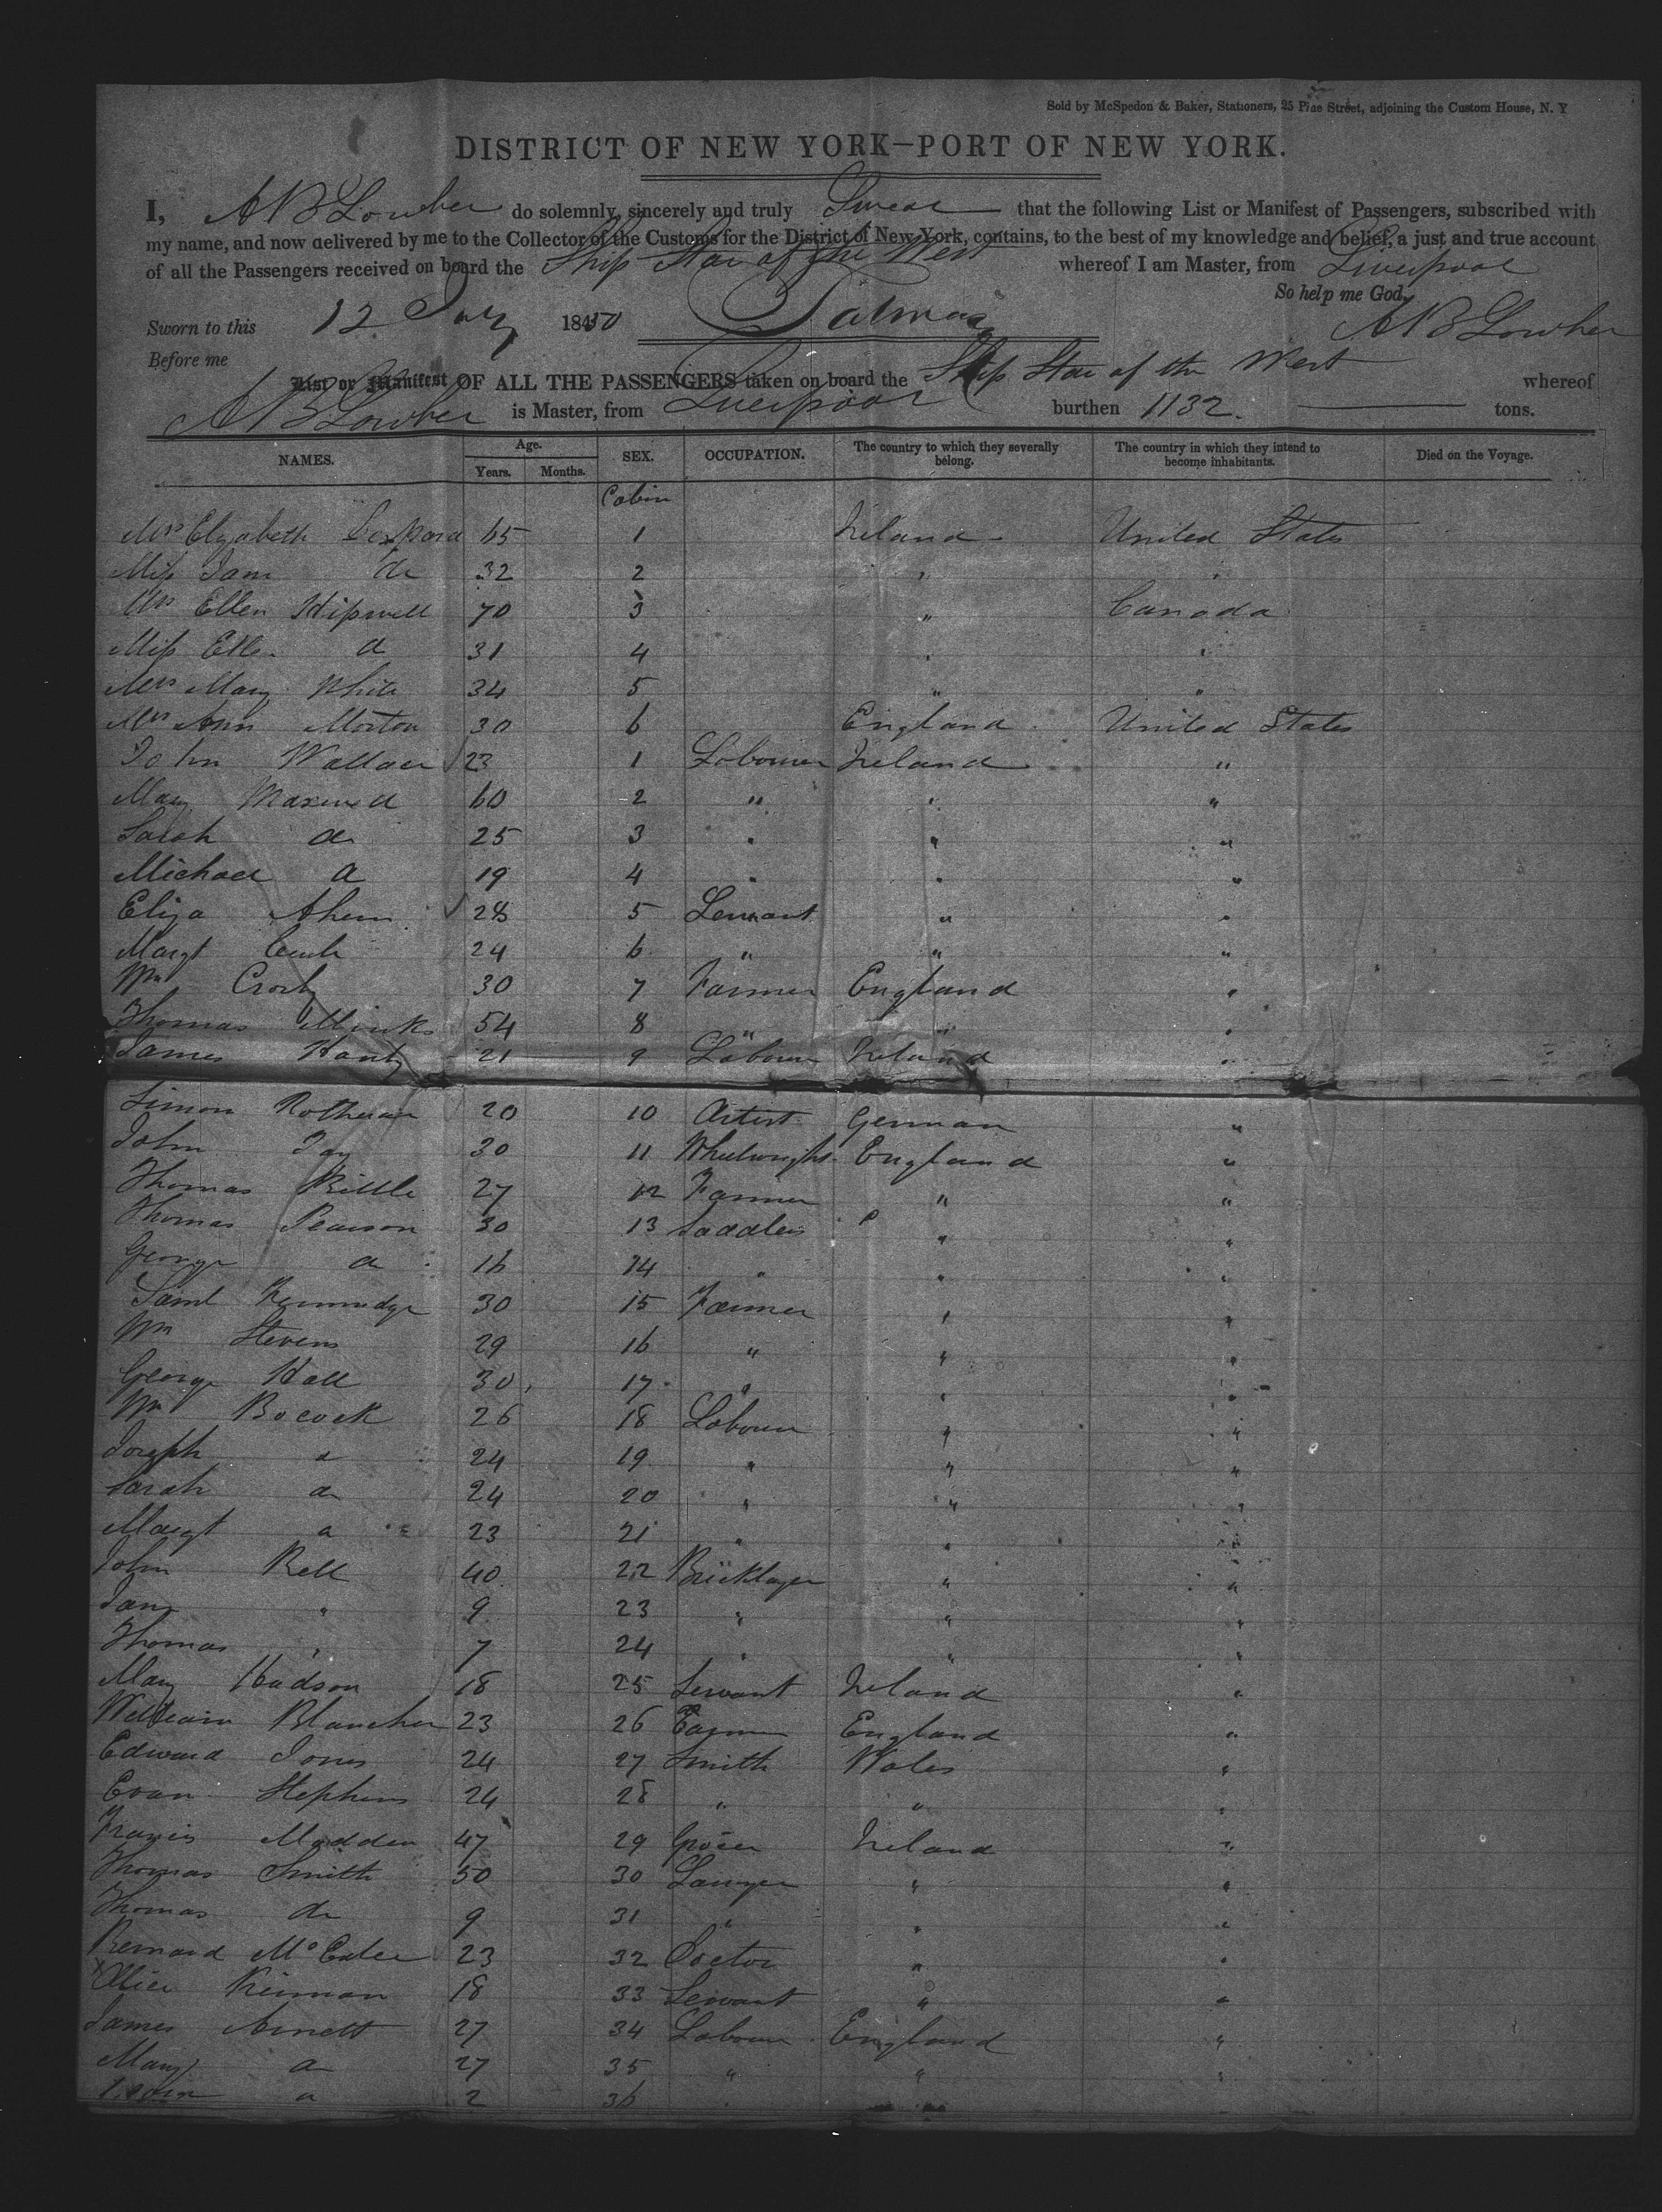 Sold by McSpedon & Baker, Stationers, 25 Pine Street, adjoining the Custom House, N. Y
DISTRICT OF NEW YORK—PORT OF NEW YORK.
I, A B Lowber do solemnly, sincerely and truly Swear that the following List or Manifest of Passengers, subscribed with
my name, and now delivered by me to the Collector of the Customs for the District of New York, contains, to the best of my knowledge and belief, a just and true account
of all the Passengers received on board the Ship Star of the West whereof I am Master, from Liverpool
So help me God.
Sworn to this 12 1850 A B Lowber
Before me
List or Manifest OF ALL THE PASSENGERS taken on board the Ship Star of the West whereof
A B Lowber is Master, from Liverpool burthen 1132 tons.
NAMES. Age. Years. Months. SEX. OCCUPATION. The country to which they severally belong. The country in which they intend to become inhabitants. Died on the Voyage.
Cabin
Mrs Elizabeth 65 1 Ireland United States
Miss Jane do 32 2 " "
Mrs Ellen Hipwell 70 3 " Canada
Miss Ellen do 31 4 " "
Mrs Mary White 34 5 " "
Mrs Ann Morton 30 6 England United States
John Wallace 23 1 Labourer Ireland "
Mary Maxwell 60 2 " " "
Sarah do 25 3 " " "
Michael do 19 4 " " "
Eliza Ahern 28 5 Servant " "
Margt 24 6 " " "
Wm Crosby 30 7 Farmer England "
Thomas Minks 54 8 " " "
James Hanty 21 9 Labourer Ireland "
Simon 20 10 Artist German "
John 30 11 Wheelwright England "
Thomas Kittle 27 12 Farmer " "
Thomas Pearson 30 13 Saddlers " "
George do 16 14 " " "
Saml 30 15 Farmer " "
Wm Stevens 29 16 " " "
George Hall 30 17 " " "
Wm Bocock 26 18 Labourer " "
Joseph do 24 19 " " "
Sarah do 24 20 " " "
Margt do 23 21 " " "
John Bell 40 22 Bricklayer " "
Jane " 9 23 " " "
Thomas " 7 24 " " "
Mary Hudson 18 25 Servant Ireland "
William Blancher 23 26 Farmer England "
Edward Jones 24 27 Smith Wales "
Evan Stephens 24 28 " " "
Francis Madden 47 29 Grocer Ireland "
Thomas Smith 50 30 Lawyer " "
Thomas do 9 31 " " "
Bernard 23 32 Doctor " "
Alice Kiernan 18 33 Servant " "
James Arnett 27 34 Labourer England "
Mary do 27 35 " " "
do 2 36